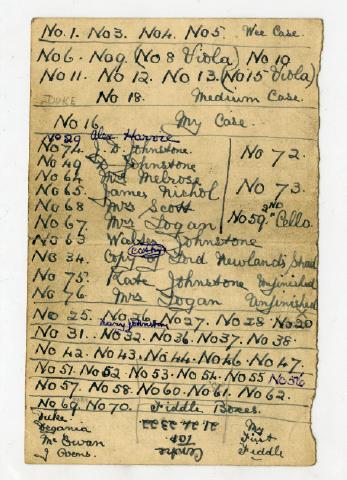 No. 1. No 3. No 4. No 5. Wee Case.
No 6. No 9. (No 8 Viola) No 10
No 11. No 12. No 13. (No 15 Viola)
DUKE No 18. Medium Case.
No 16. My Case.
No 29 Alex Harvie
No 74. J. D. Johnstone No 72.
No 49 Johnstone
No 64. Mrs Melrose
No 65. James Nichol No 73.
No 68 Mrs Scott 2ND
No 67. Mrs Logan No 59. "Cello
No 63 Walter Johnstone
No 34. Copy (CATHY) Lord Newlands Strad
No 75. Kate Johnstone Unfinished
No 76. Mrs Logan Unfinished
No 25. No 26. No 27. No 28 No 20
Mary Johnston
No 31. No 32. No 36. No 37. No 38.
No 42. No 43. No 44. No 46. No 47.
No 51. No 52 No 53. No 54. No 55 No 56
No 57. No 58. No 60. No 61. No 62.
No 69. No 70. Fiddle Boxes.
Duke. My
Degania First
Mc Ewan Fiddle
J Poems.
Centre
Top
21. 24. 23. 22.